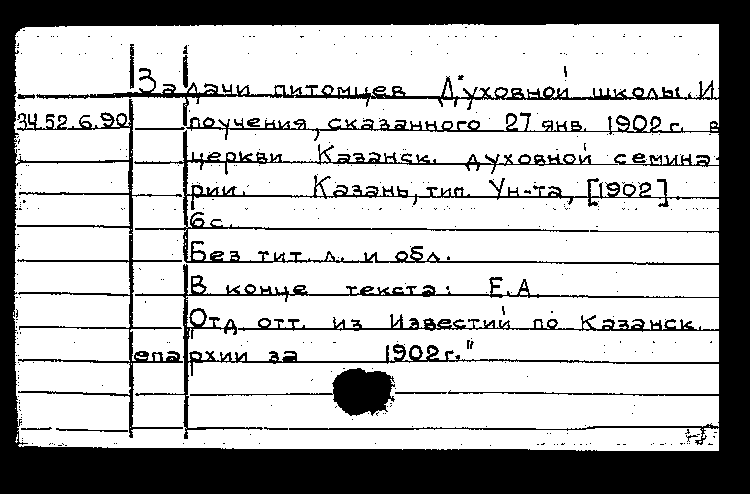 Задачи питомцев Духовной школы. И
34.52.6.90 поучения, сказанного 27 янв. 1902 г. в
церкви Казанск. духовной семина-
рии. Казань, тип. Ун-та, [1902].
6 с.
Без тит. л. и обл.
В конце текста: Е.А.
"Отд. отт. из Известий по Казанск.
епархии за 1902 г."